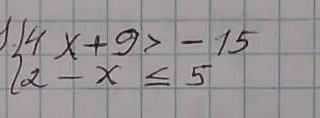 {4x + 9 > - 15
{2 - x ≤ 5